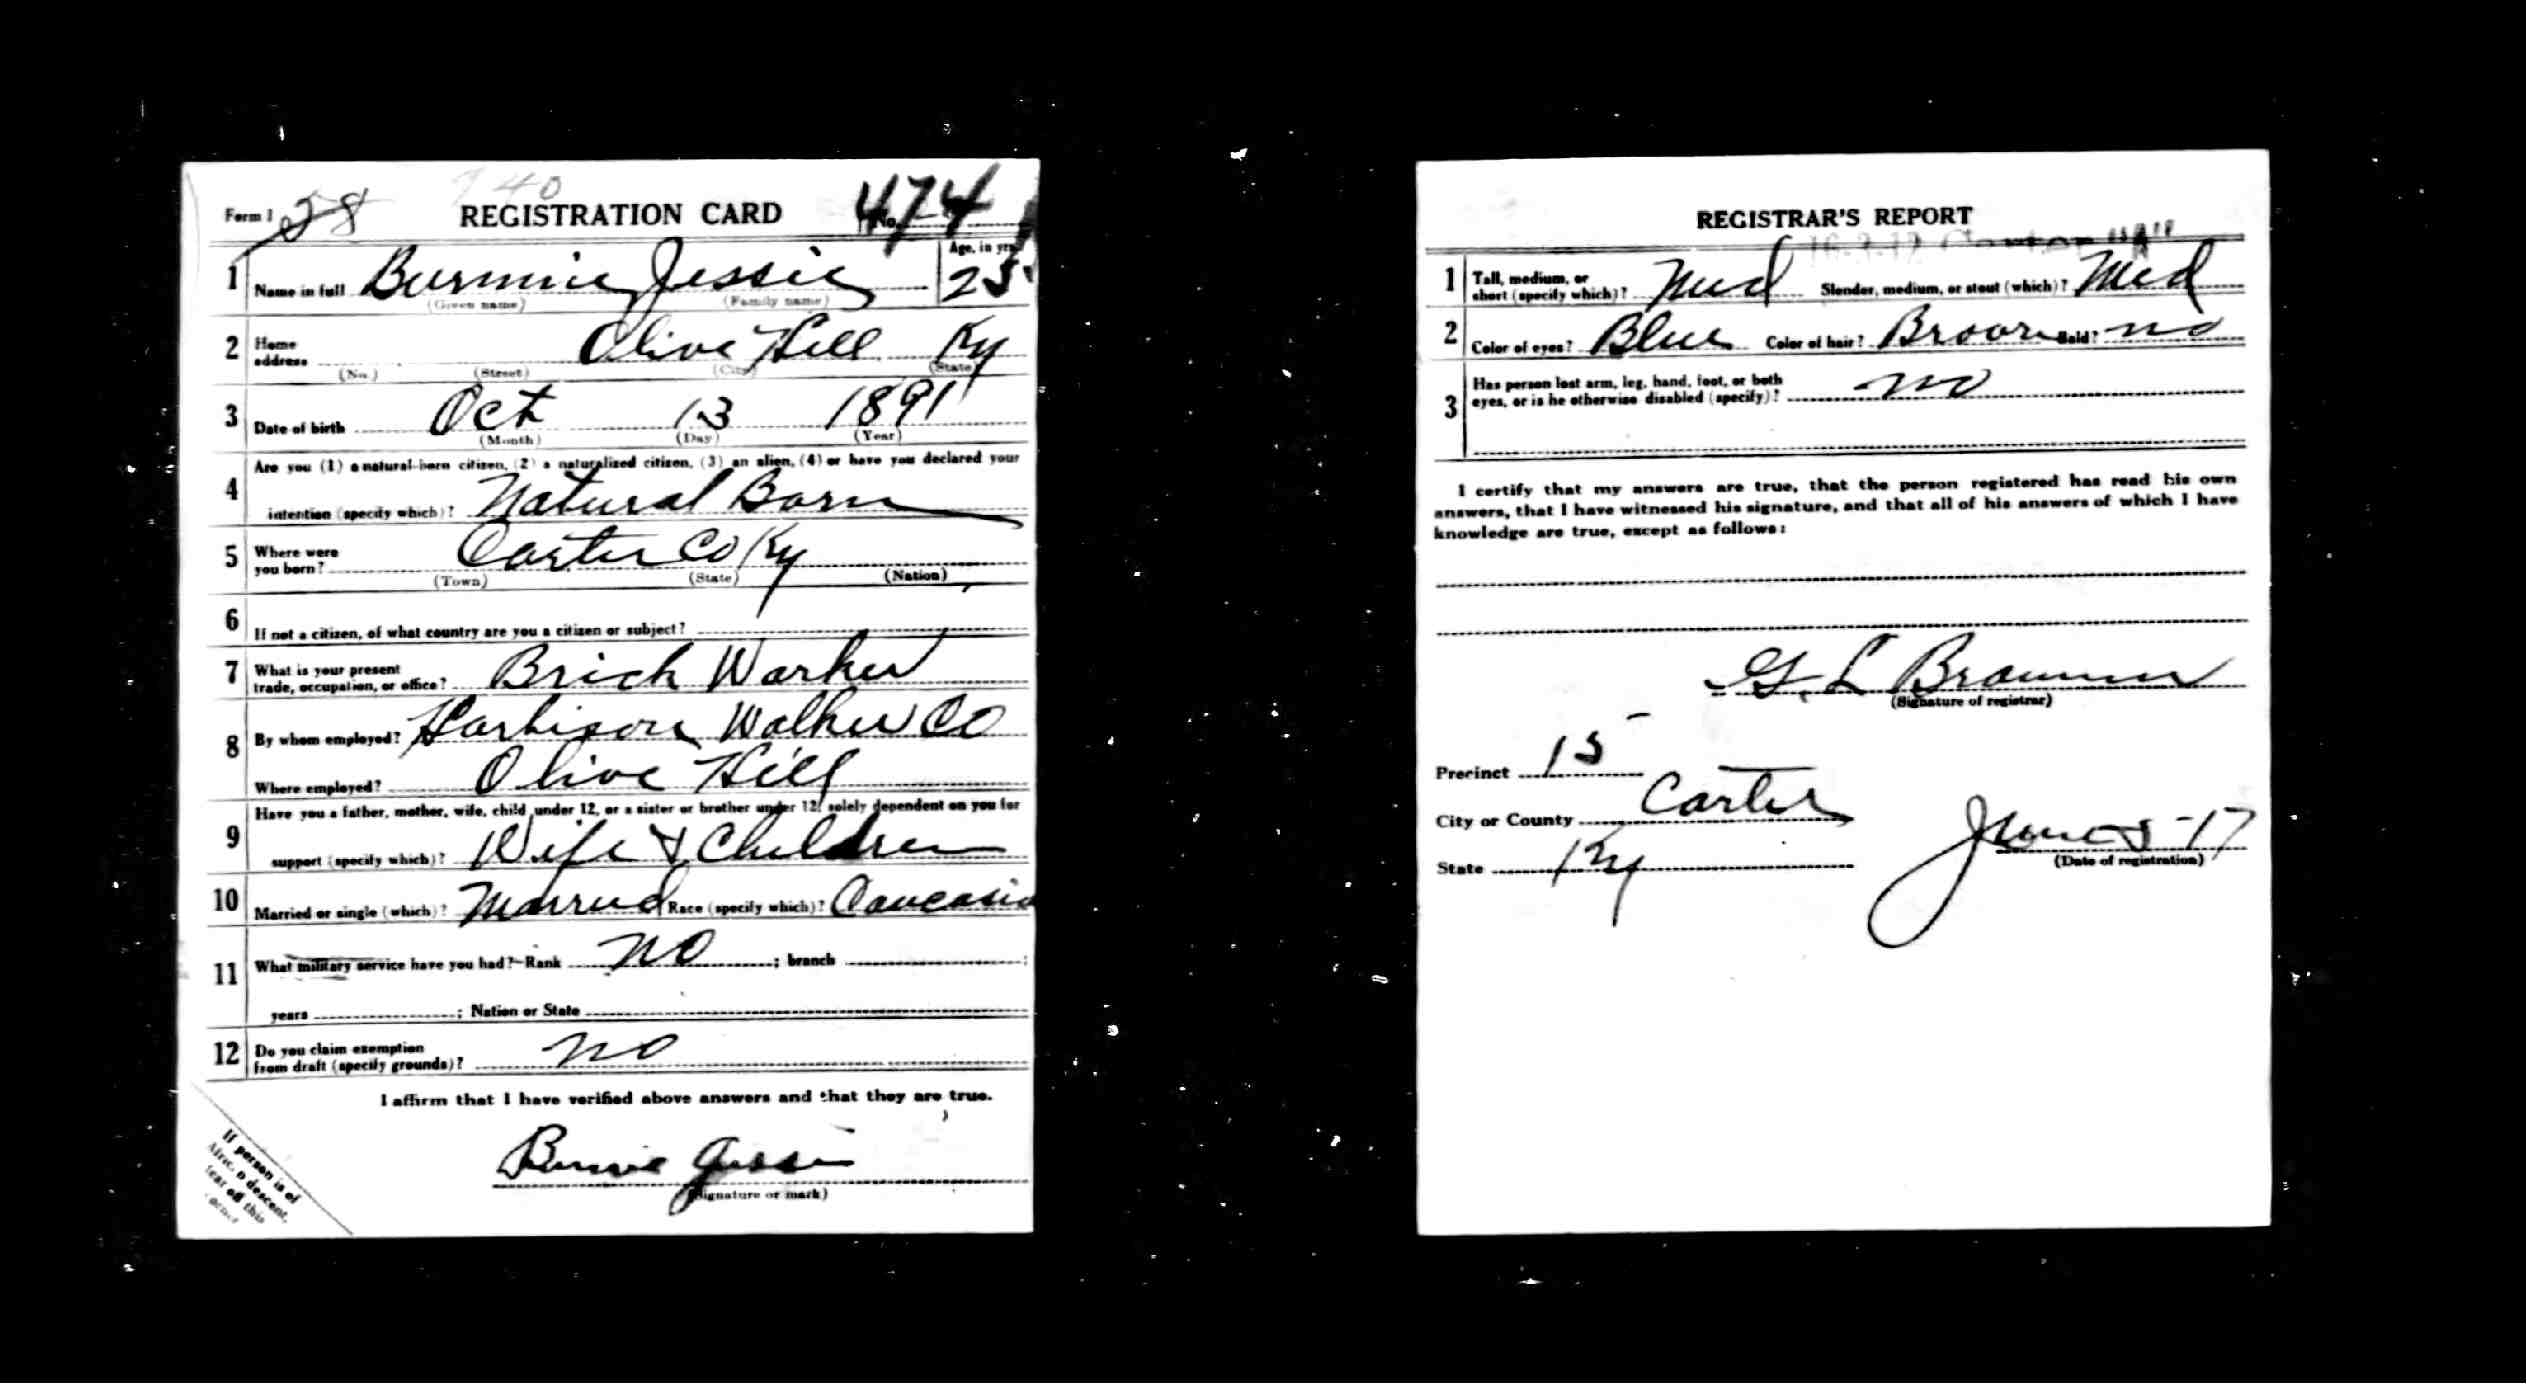 Form 1 28 740 REGISTRATION CARD No. 474
1 Name in full Burmie Jessie Age, in yrs 25
(Given name) (Family name)
2 Home address Olive Hill Ky
(No.) (Street) (City) (State)
3 Date of birth Oct 13 1891
(Month) (Day) (Year)
4 Are you (1) a natural-born citizen, (2) a naturalized citizen, (3) an alien, (4) or have you declared your
intention (specify which)? Natural Born
5 Where were you born? Carter Co Ky
(Town) (State) (Nation)
6 If not a citizen, of what country are you a citizen or subject?
7 What is your present trade, occupation, or office? Brick Worker
8 By whom employed? Harbison Walker Co
Where employed? Olive Hill
9 Have you a father, mother, wife, child under 12, or a sister or brother under 12, solely dependent on you for
support (specify which)? Wife & Children
10 Married or single (which)? Married Race (specify which)? Caucasia
11 What military service have you had? Rank no ; branch ;
years ; Nation or State
12 Do you claim exemption from draft (specify grounds)? no
I affirm that I have verified above answers and that they are true.
Burmie Jessie
(Signature or mark)
If person is of
descent,
tear off this
corner
REGISTRAR'S REPORT
16-3-17 Carter "A"
1 Tall, medium, or short (specify which)? Med Slender, medium, or stout (which)? Med
2 Color of eyes? Blue Color of hair? Broown Bald? no
3 Has person lost arm, leg, hand, foot, or both eyes, or is he otherwise disabled (specify)? no
I certify that my answers are true, that the person registered has read his own
answers, that I have witnessed his signature, and that all of his answers of which I have
knowledge are true, except as follows:
G. L
(Signature of registrar)
Precinct 15
City or County Carter
State Ky
June 5-17
(Date of registration)